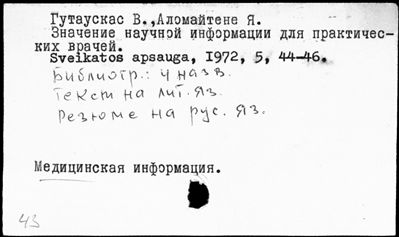 Гутаускас В.,Аломайтене Я.
Значение научной информации для практичес-
ких врачей.
Sveikatos apsauga, 1972, 5, 44-46.
Библиогр.: 4 назв.
Текст на лит. яз.
Резюме на рус. яз.
Медицинская информация.
43